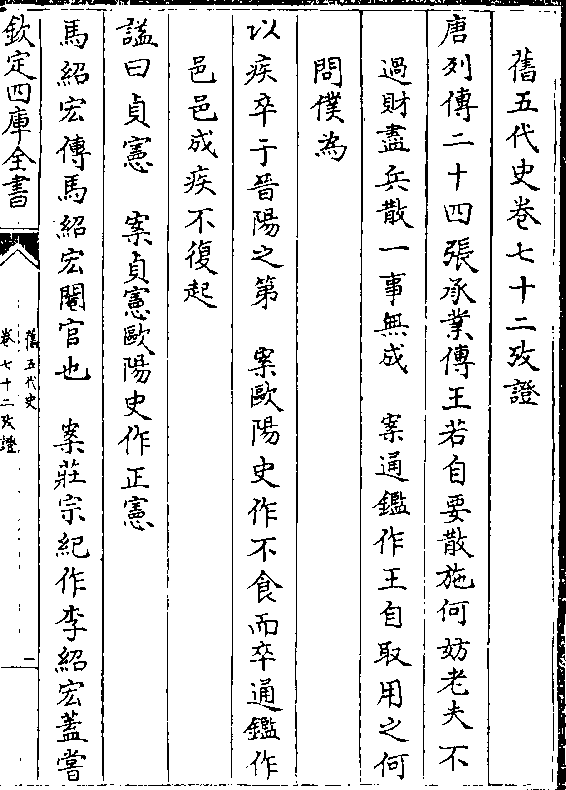 舊五代史卷七十二攷證
唐列傳二十四張承業傳王若自要散施何妨老夫不
過財盡兵散一事無成　案通鑑作王自取用之何
問僕為
以疾卒于晉陽之第　案歐陽史作不食而卒通鑑作
邑邑成疾不復起
諡曰貞憲　案貞憲歐陽史作正憲
馬紹宏傳馬紹宏閹官也　案莊宗紀作李紹宏蓋嘗
欽定四庫全書
舊五代史
卷七十二攷證
一